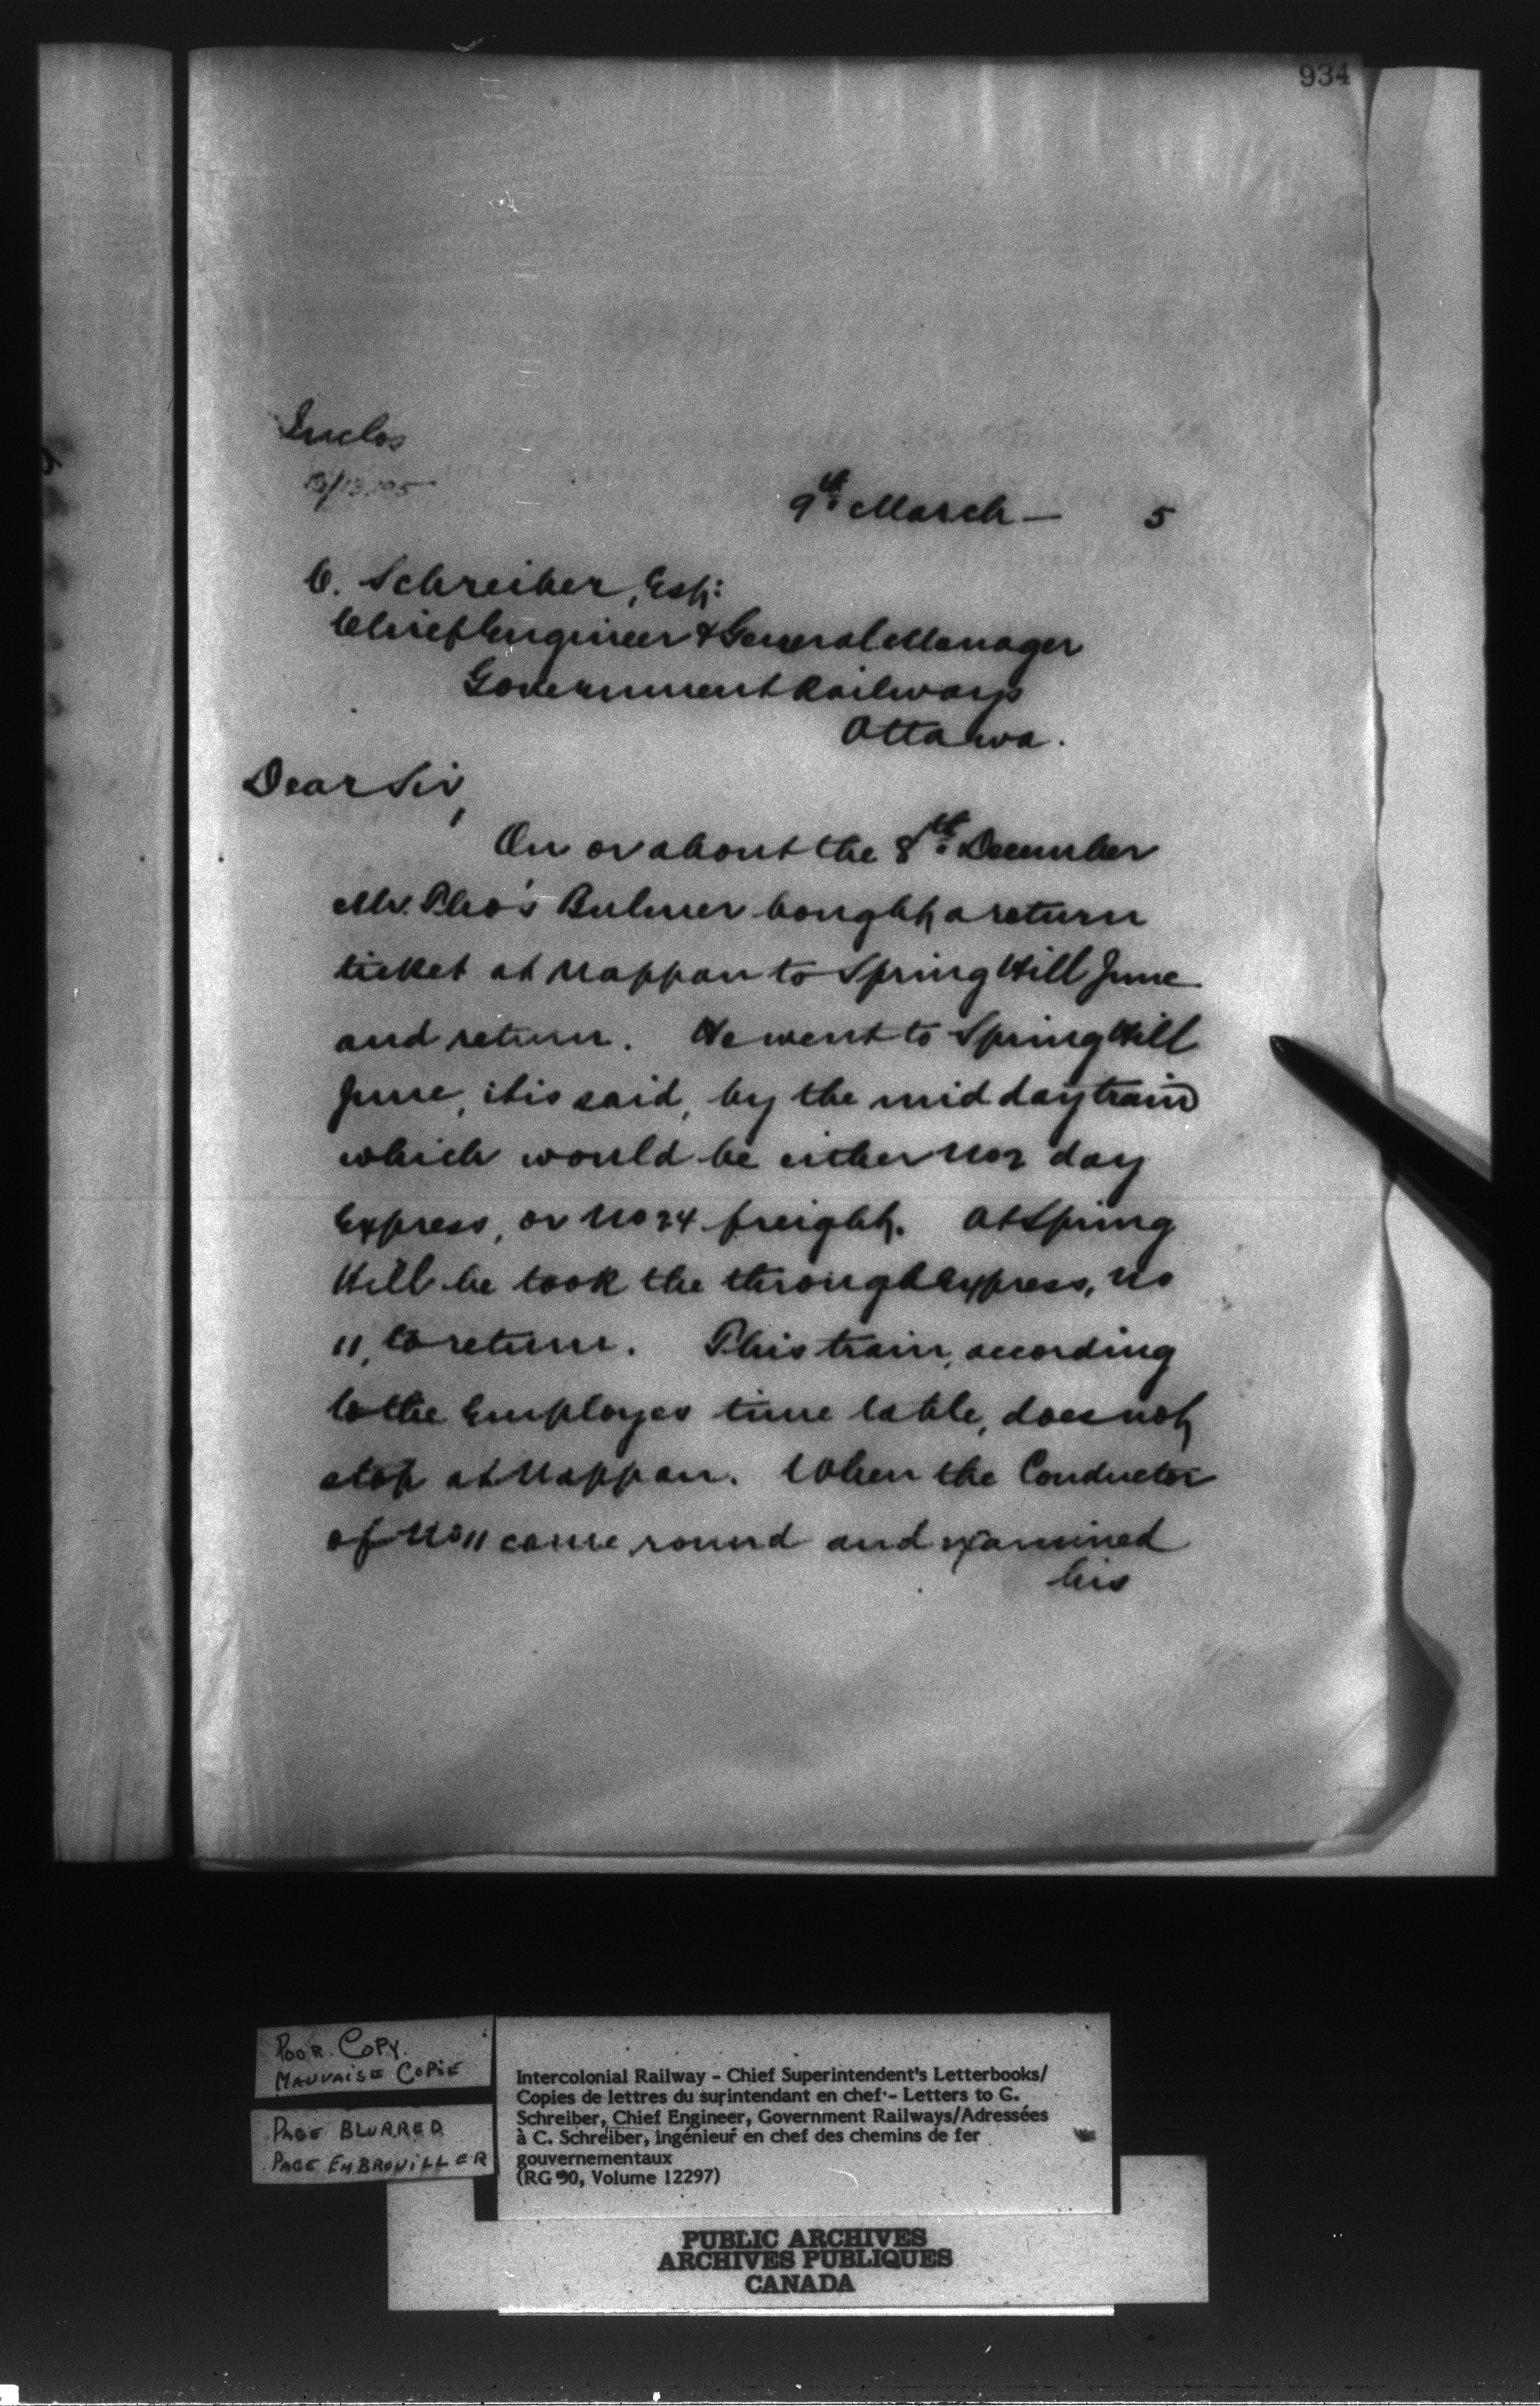 934
Enclos
9th March — 5
C. Schreiber, Esq:
Chief Engineer & General Manager
Government Railways
Ottawa.
Dear Sir,
On or about the 8th December
Mr. Tho's Bulmer bought a return
ticket at Nappan to Spring Hill Junc
and return. He went to Spring Hill
Junc, it is said, by the mid day train
which would be either No 2 day
Express, or No 24 freight. At Spring
Hill he took the through Express, No
11, to return. This train, according
to the Employes time table, does not
stop at Nappan. When the Conductor
of No 11 came round and examined
his
POOR COPY.
MAUVAISE COPIE
PAGE BLURRED
PAGE EMBROUILLER
Intercolonial Railway - Chief Superintendent's Letterbooks/
Copies de lettres du surintendant en chef - Letters to G.
Schreiber, Chief Engineer, Government Railways/Adressées
à C. Schreiber, ingénieur en chef des chemins de fer
gouvernementaux
(RG 90, Volume 12297)
PUBLIC ARCHIVES
ARCHIVES PUBLIQUES
CANADA